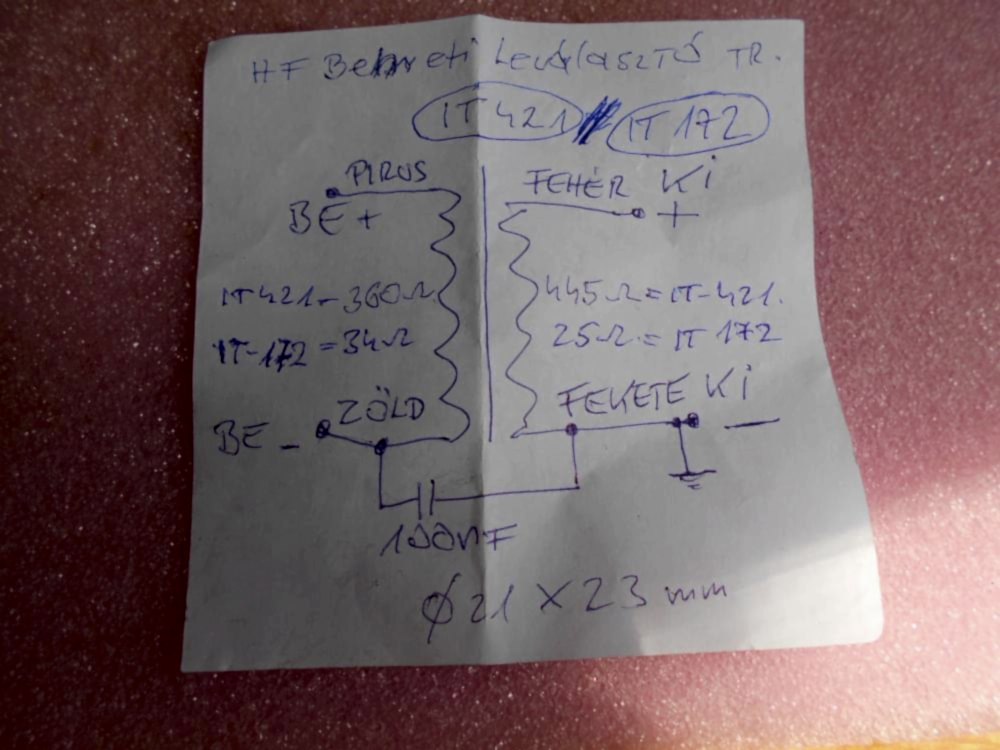 HF Bemeneti Leválasztó TR.
IT 421 IT 172
PIROS FEHÉR KI
BE + +
IT421 - 360Ω 445Ω = IT-421.
IT-172 = 34Ω 25Ω = IT 172
ZÖLD FEKETE KI
BE - -
100nF
Ø 21 x 23 mm